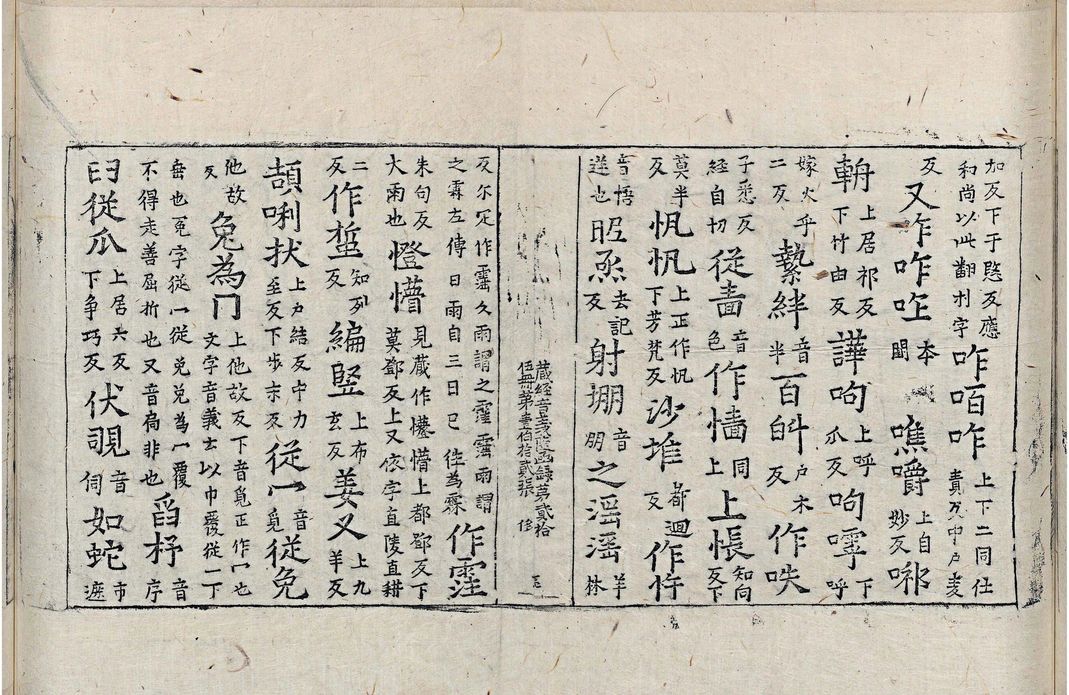 加反下于愍反應
和尚以此翻刋字
咋咟咋
上下二同仕
責反中戶麦
反
又咋咋咗
本
聞
噍嚼
上自
妙反
㖿
輈
上居祁反
下竹由反
譁呴
上呼
爪反
呴嘑
下
呼
嫁火乎
二反
縶絆
音
半
戶木
反
作呹
子悉反
經自切
從嗇
音
色
作懎
同
上
上悵
知向
反下
莫半
反
帆帆
上正作帆
下芳梵反
沙堆
都廻
反
作忤
音悟
逆也
去記
反
射堋
音
朋
之滛滛
羊
林
藏經音義隨函録第貳拾
伍冊第壹伯拾貳張
反尔疋作霪久雨謂之霪霪雨謂
之霖左傳曰雨自三日已往為霖
作霔
朱句反
大雨也
憕懵
見藏作㦬懵上都鄧反下
莫鄧反上又依字直陵直耕
二
反
作蜇
知列
反
編竪
上布
玄反
姜又
上九
羊反
頡唎
上戶結反中力
至反下步末反
從冖
音
覓
從兔
他故
反
兔為冂
上他故反下音覓正作冖也
文字音義云以巾覆從一下
垂也冤字從冖從兔兔為冖覆
不得走善屈折也又音
非也
舀杼
音
序
臼從爪
上居六反
下争巧反
伏覗
音
伺
如蛇
市
遮